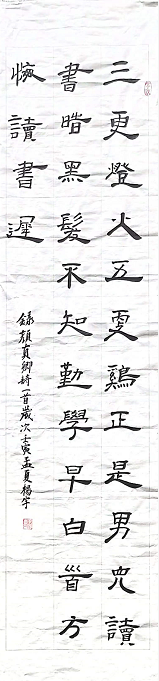 三更燈火五更鷄正是男児讀
書時黑髮不知勤學早白首方
悔讀書遲
錄顏真卿詩一首歲次壬寅孟夏楊宇